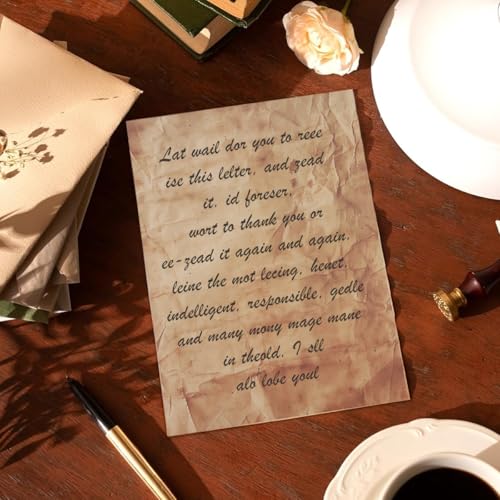 Lat wail dor you to reee
ise this lelter, and zead
it, id foreser,
wort to thank you or
ee-zead it again and again,
leine the mot lecing, henet,
indelligent, responsible, gedle
and many mony mage mane
in theold, I sll
alo lobe youl